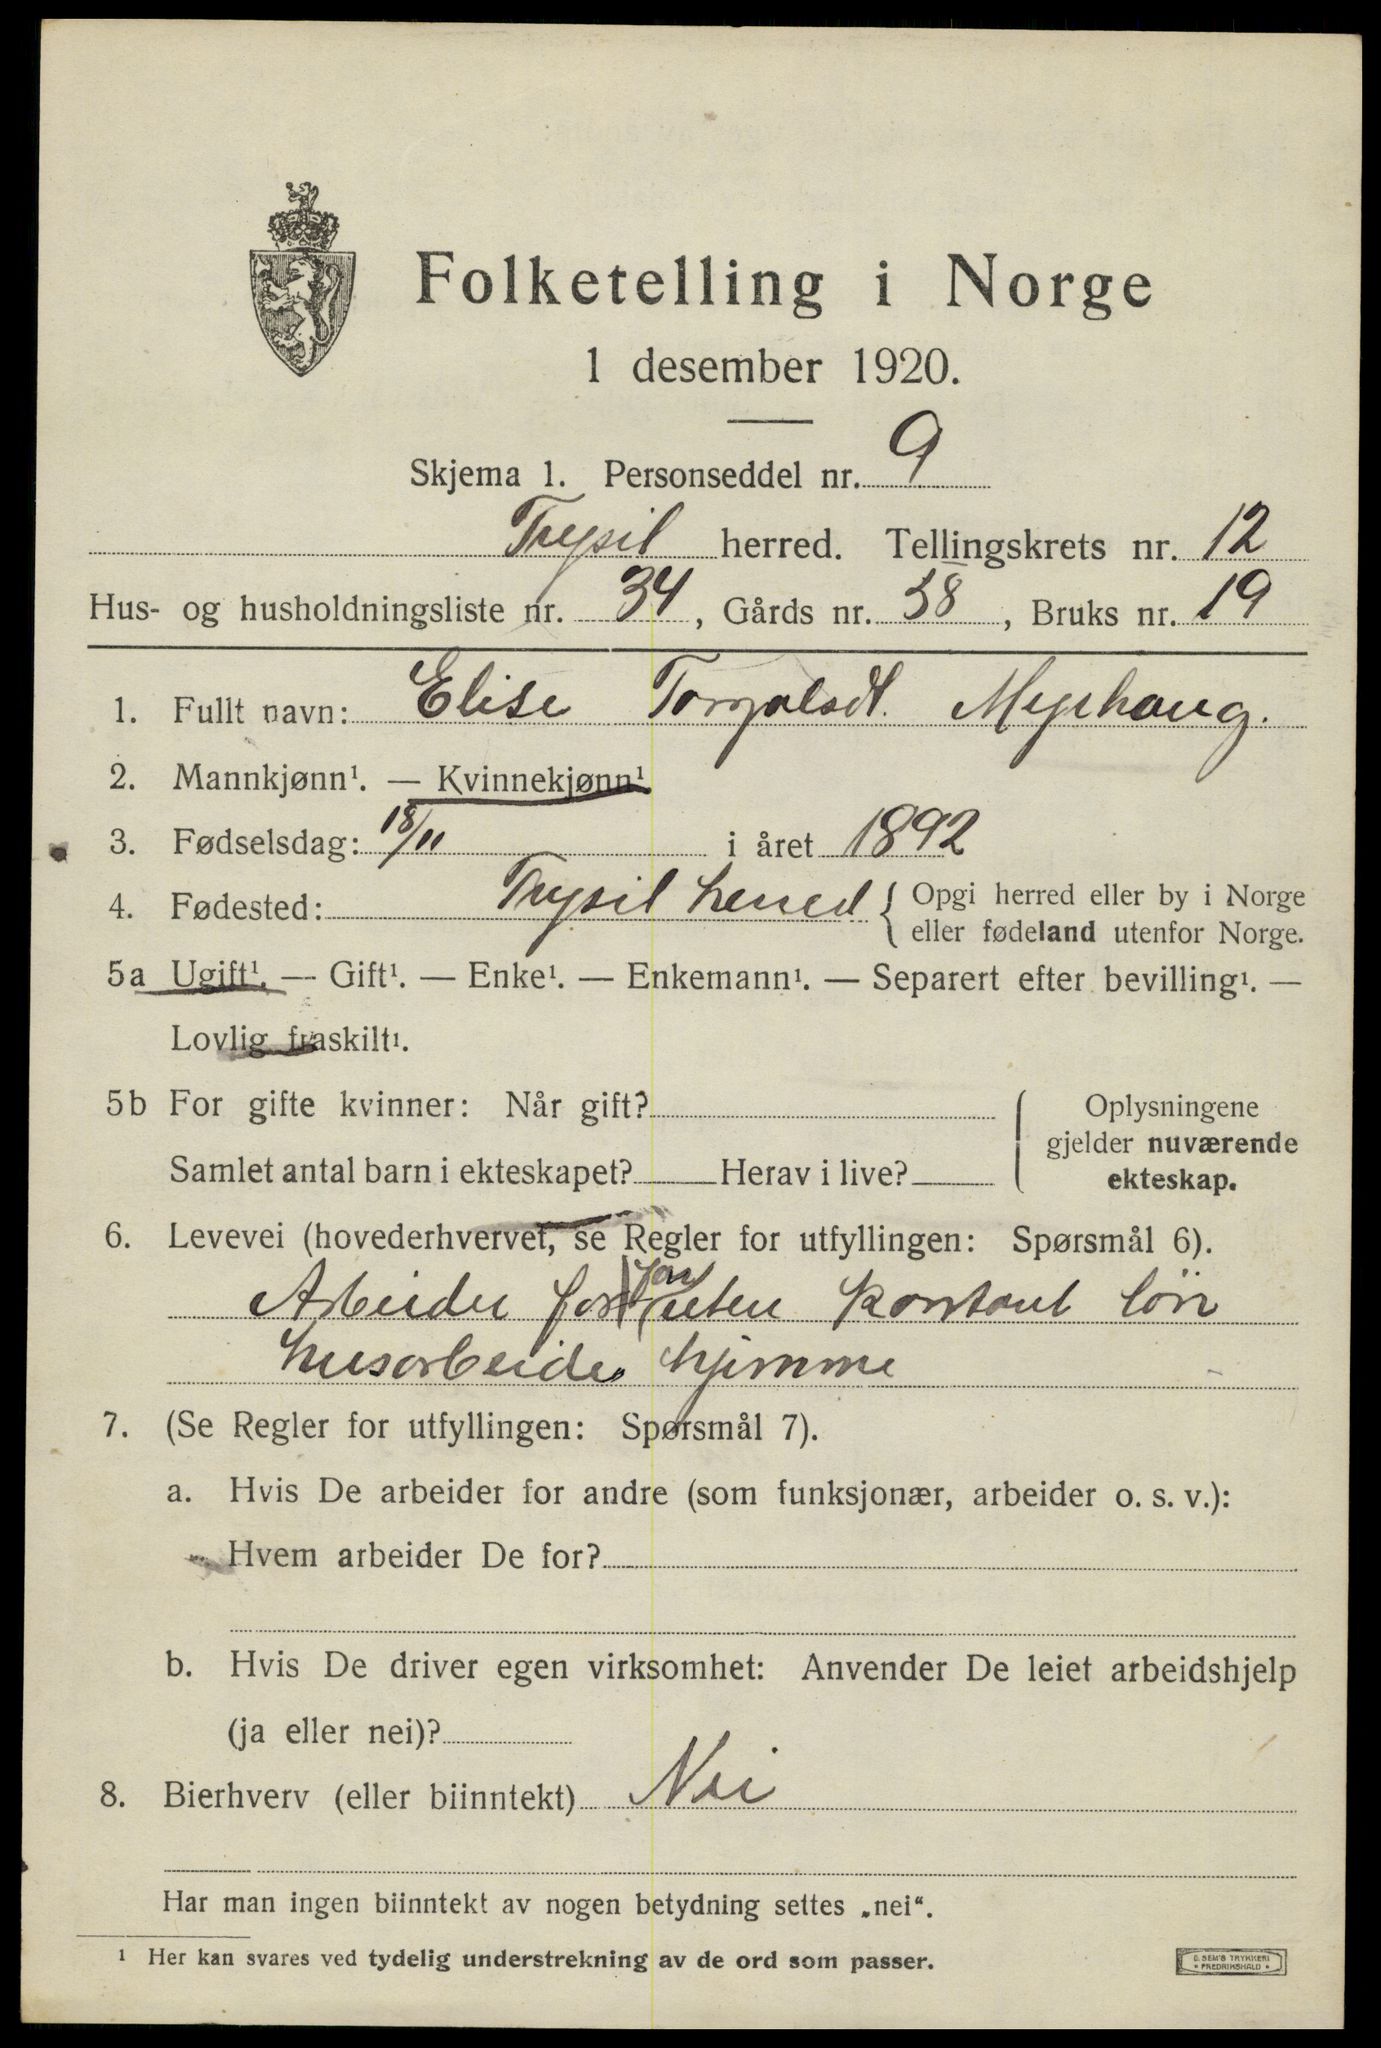 Folketelling i Norge
1 desember 1920.
Skjema 1. Personseddel nr. 9
Trysil herred. Tellingskrets nr. 12
Hus- og husholdningsliste nr. 34, Gårds nr. 38, Bruks nr. 19
1. Fullt navn: Elise Torgalsdt. Myrhaug.
2. Mannkjønn¹. — Kvinnekjønn¹
3. Fødselsdag: 18/11 i året 1892
4. Fødested: Trysil herred { Opgi herred eller by i Norge
eller fødeland utenfor Norge.
5a Ugift¹. — Gift¹. — Enke¹. — Enkemann¹. — Separert efter bevilling¹. —
Lovlig fraskilt¹.
5b For gifte kvinner: Når gift?
Samlet antal barn i ekteskapet? Herav i live?
Oplysningene
gjelder nuværende
ekteskap.
6. Levevei (hovederhvervet, se Regler for utfyllingen: Spørsmål 6).
Arbeider for uten kontant løn
husarbeide hjemme
7. (Se Regler for utfyllingen: Spørsmål 7).
a. Hvis De arbeider for andre (som funksjonær, arbeider o. s. v.):
Hvem arbeider De for?
b. Hvis De driver egen virksomhet: Anvender De leiet arbeidshjelp
(ja eller nei)?
8. Bierhverv (eller biinntekt) Nei
Har man ingen biinntekt av nogen betydning settes „nei“.
¹ Her kan svares ved tydelig understrekning av de ord som passer.
C. SEM'S TRYKKERI
• FREDRIKSHALD •